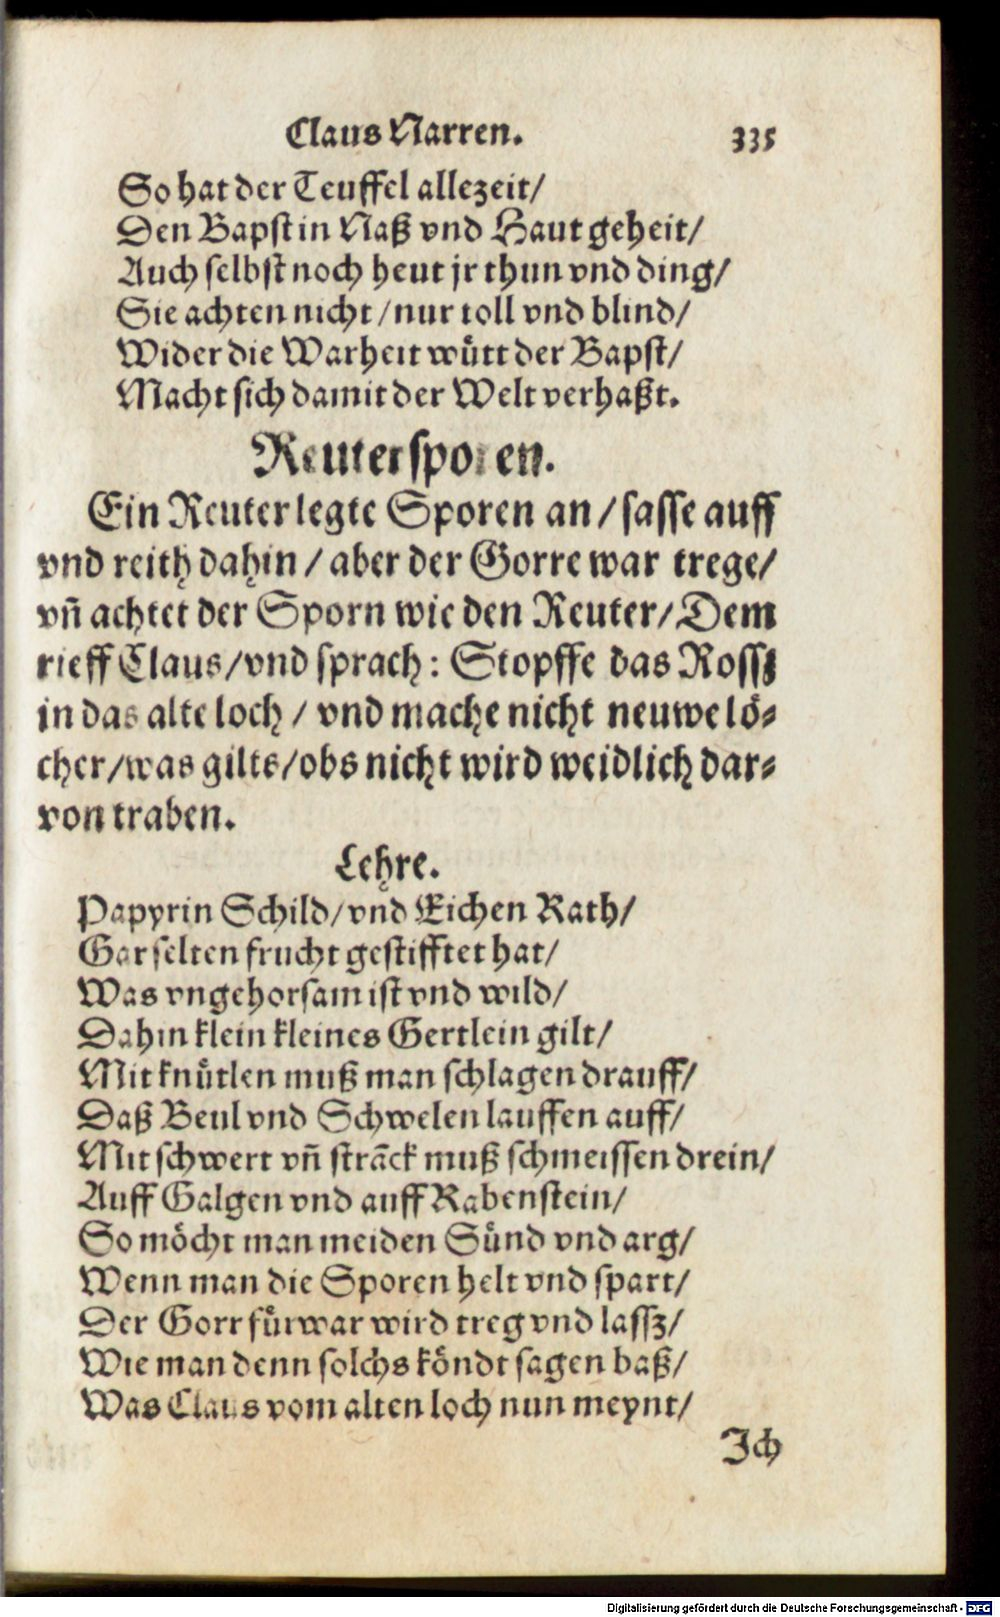 Claus Narren. 335
So hat der Teuffel allezeit/
Den Bapst in Naß vnd Haut geheit/
Auch selbst noch heut jr thun vnd ding/
Sie achten nicht/nur toll vnd blind/
Wider die Warheit wütt der Bapst/
Macht sich damit der Welt verhaßt.
Reutersporen.
Ein Reuter legte Sporen an/sasse auff
vnd reith dahin/aber der Gorre war trege/
vñ achtet der Sporn wie den Reuter/Dem
rieff Claus/vnd sprach: Stopffe das Rossz
in das alte loch/vnd mache nicht neuwe lö-
cher/was gilts/obs nicht wird weidlich dar-
von traben.
Lehre.
Papyrin Schild/vnd Eichen Rath/
Gar selten frucht gestifftet hat/
Was vngehorsam ist vnd wild/
Dahin klein kleines Gertlein gilt/
Mit knütlen muß man schlagen drauff/
Daß Beul vnd Schwelen lauffen auff/
Mit schwert vñ strāck muß schmeissen drein/
Auff Galgen vnd auff Rabenstein/
So möcht man meiden Sünd vnd arg/
Wenn man die Sporen helt vnd spart/
Der Gorr fürwar wird treg vnd lassz/
Wie man denn solchs köndt sagen baß/
Was Claus vom alten loch nun meynt/
Ich
Digitalisierung gefördert durch die Deutsche Forschungsgemeinschaft - DFG